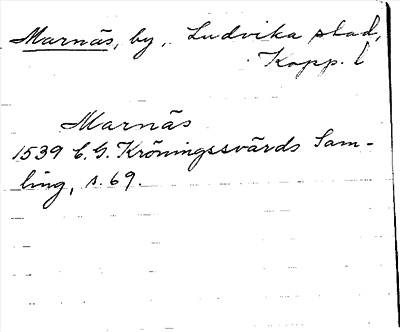 Marnäs, by, Ludvika stad,
Kopp. l
Marnäs
1539 C.G. Kröningssvärds Sam-
ling, s. 69.